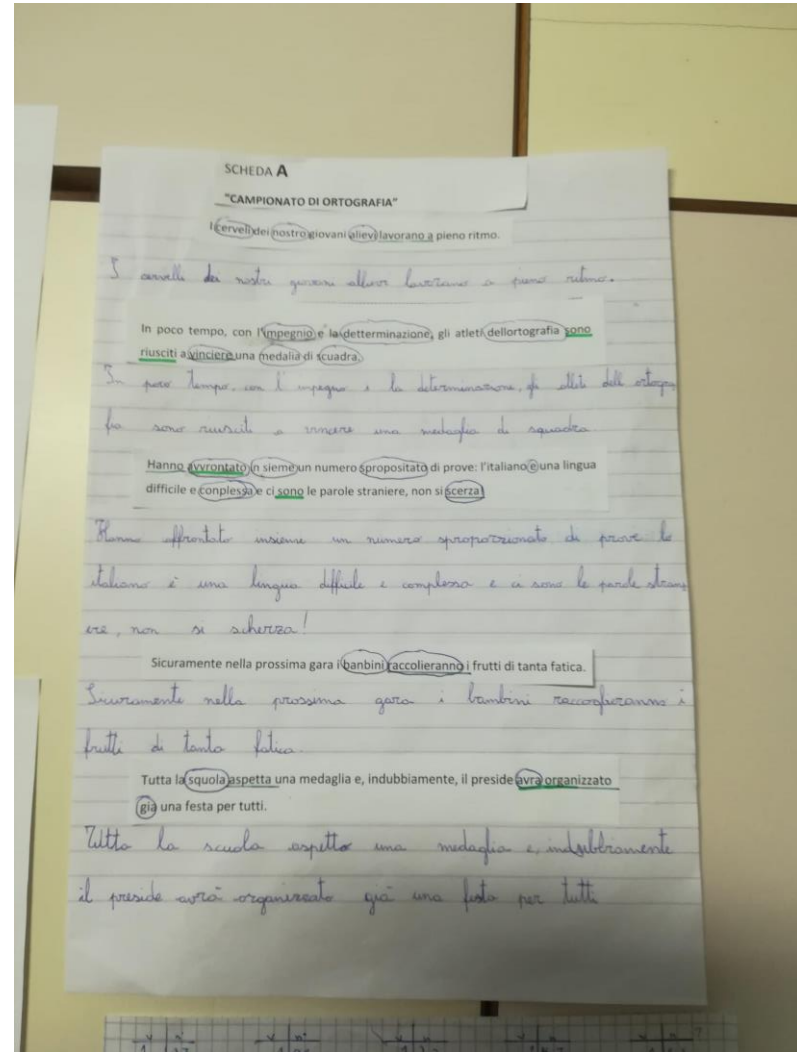 SCHEDA A
"CAMPIONATO DI ORTOGRAFIA"
I cerveli dei nostro giovani alievi lavorano a pieno ritmo.
I cervelli dei nostri giovani allievi lavorano a pieno ritmo.
In poco tempo, con l'impegnio e la detterminazione, gli atleti dellortografia sono
riusciti a vinciere una medalia di scuadra.
In poco tempo, con l'impegno e la determinazione, gli atleti dell'ortogra
fia sono riusciti a vincere una medaglia di squadra
Hanno avvrontato in sieme un numero spropositato di prove: l'italiano e una lingua
difficile e conplessa e ci sono le parole straniere, non si scerza!
Hanno affrontato insieme un numero sproporzionato di prove lo
italiano è una lingua difficile e complessa e ci sono le parole strani
ere, non si scherza!
Sicuramente nella prossima gara i banbini raccolieranno i frutti di tanta fatica.
Sicuramente nella prossima gara i bambini raccoglieranno i
frutti di tanta fatica.
Tutta la squola aspetta una medaglia e, indubbiamente, il preside avra organizzato
già una festa per tutti.
Tutta la scuola aspetta una medaglia e, indubbiamente
il preside avrà organizzato già una festa per tutti